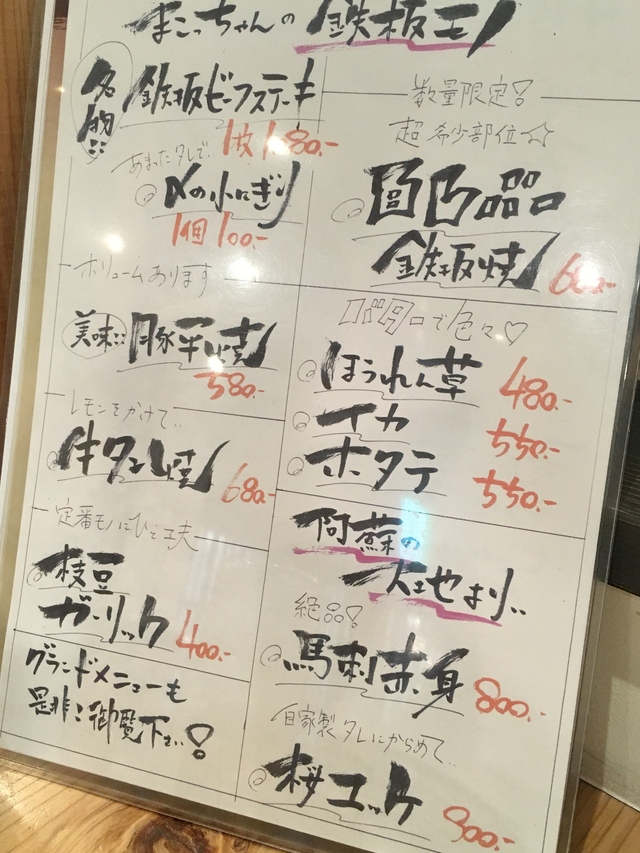 まこっちゃんの 鉄板モノ
名物!! 鉄板ビーフステーキ
1枚 180.-
あまったタレで..
〆の小にぎり
1個 100.-
ボリュームあります
美味!! 豚平焼
580.-
レモンをかけて..
牛タン焼
680.-
定番モノにひと工夫
枝豆
ガーリック
400.-
グランドメニューも
是非!御覧下さい!
数量限定!
超 希少部位☆
鉄板焼
600.-
バター口で色々♡
ほうれん草
480.-
イカ
550.-
ホタテ
550.-
阿蘇の
大地より..
絶品!
馬刺赤身
800.-
自家製タレにからめて..
桜ユッケ
900.-